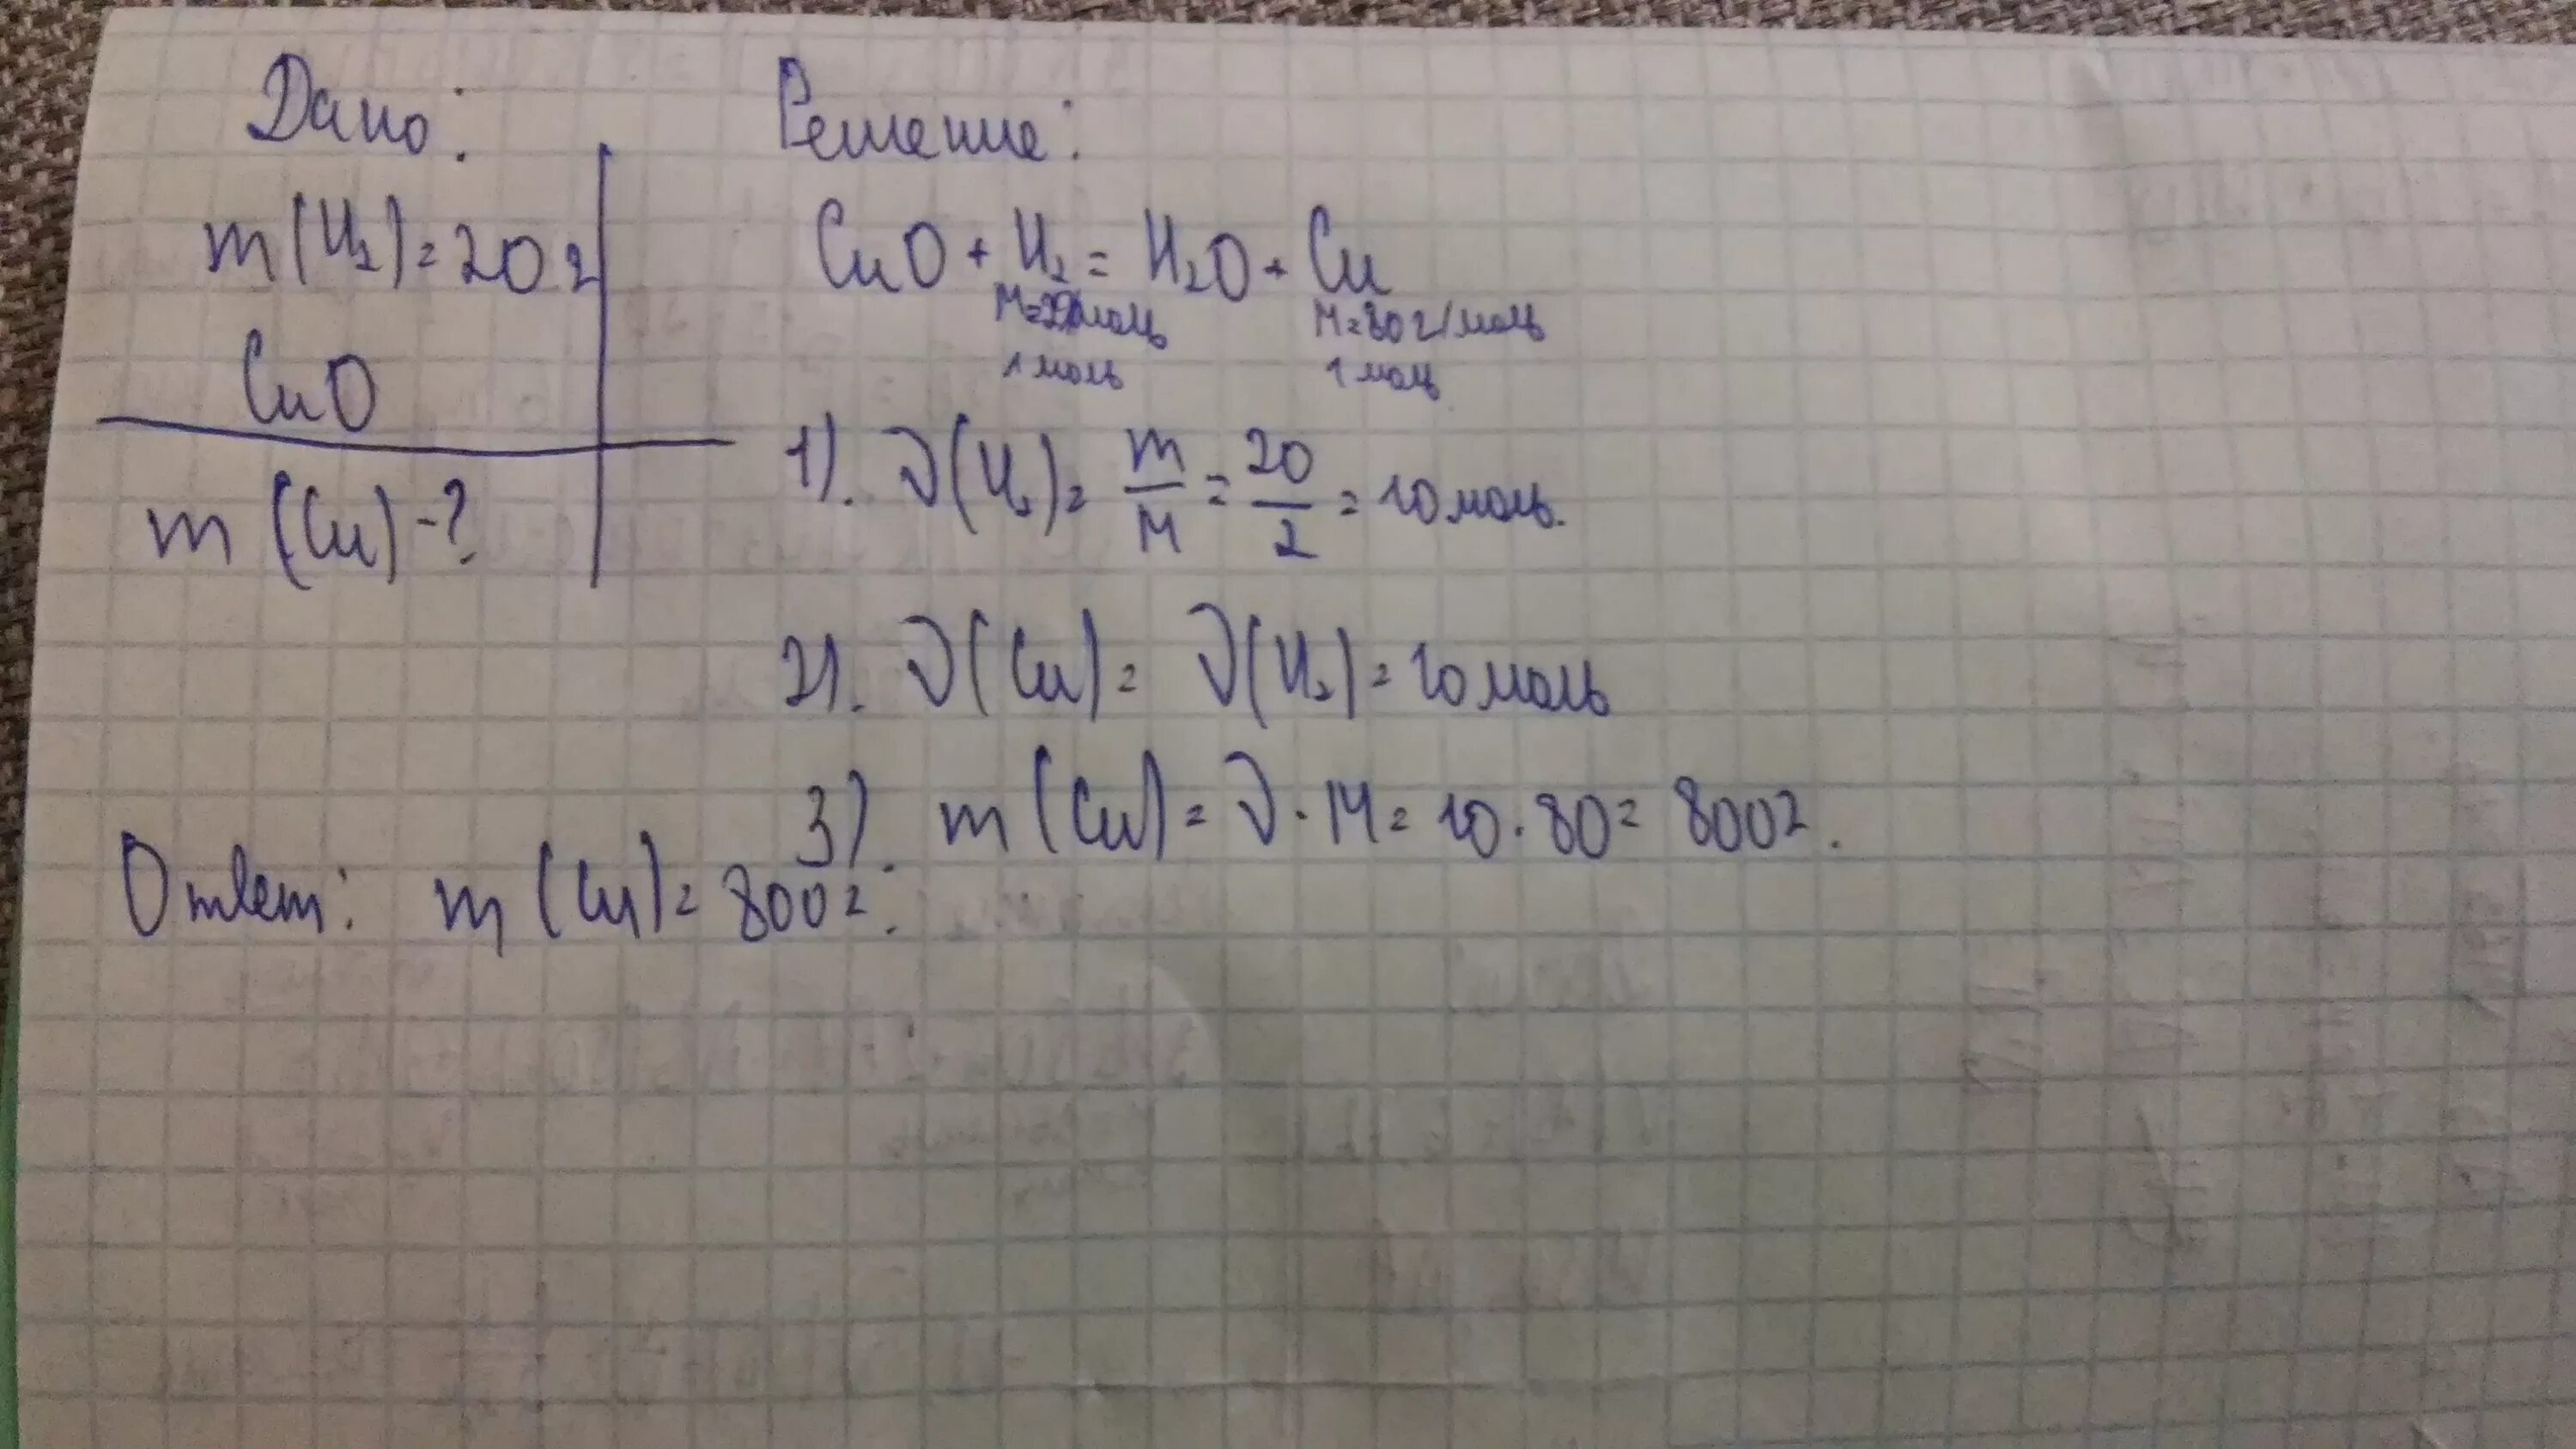 Дано:
m(H₂)=20г
CuO
m(Cu)-?
Решение:
CuO + H₂ = H₂O + Cu
M=2г/моль M=80г/моль
1 моль 1 моль
1). ν(H₂)= m/M = 20/2 = 10 моль.
2). ν(Cu)= ν(H₂)= 10 моль
3). m(Cu)= ν·M= 10·80= 800г.
Ответ: m(Cu)= 800г.